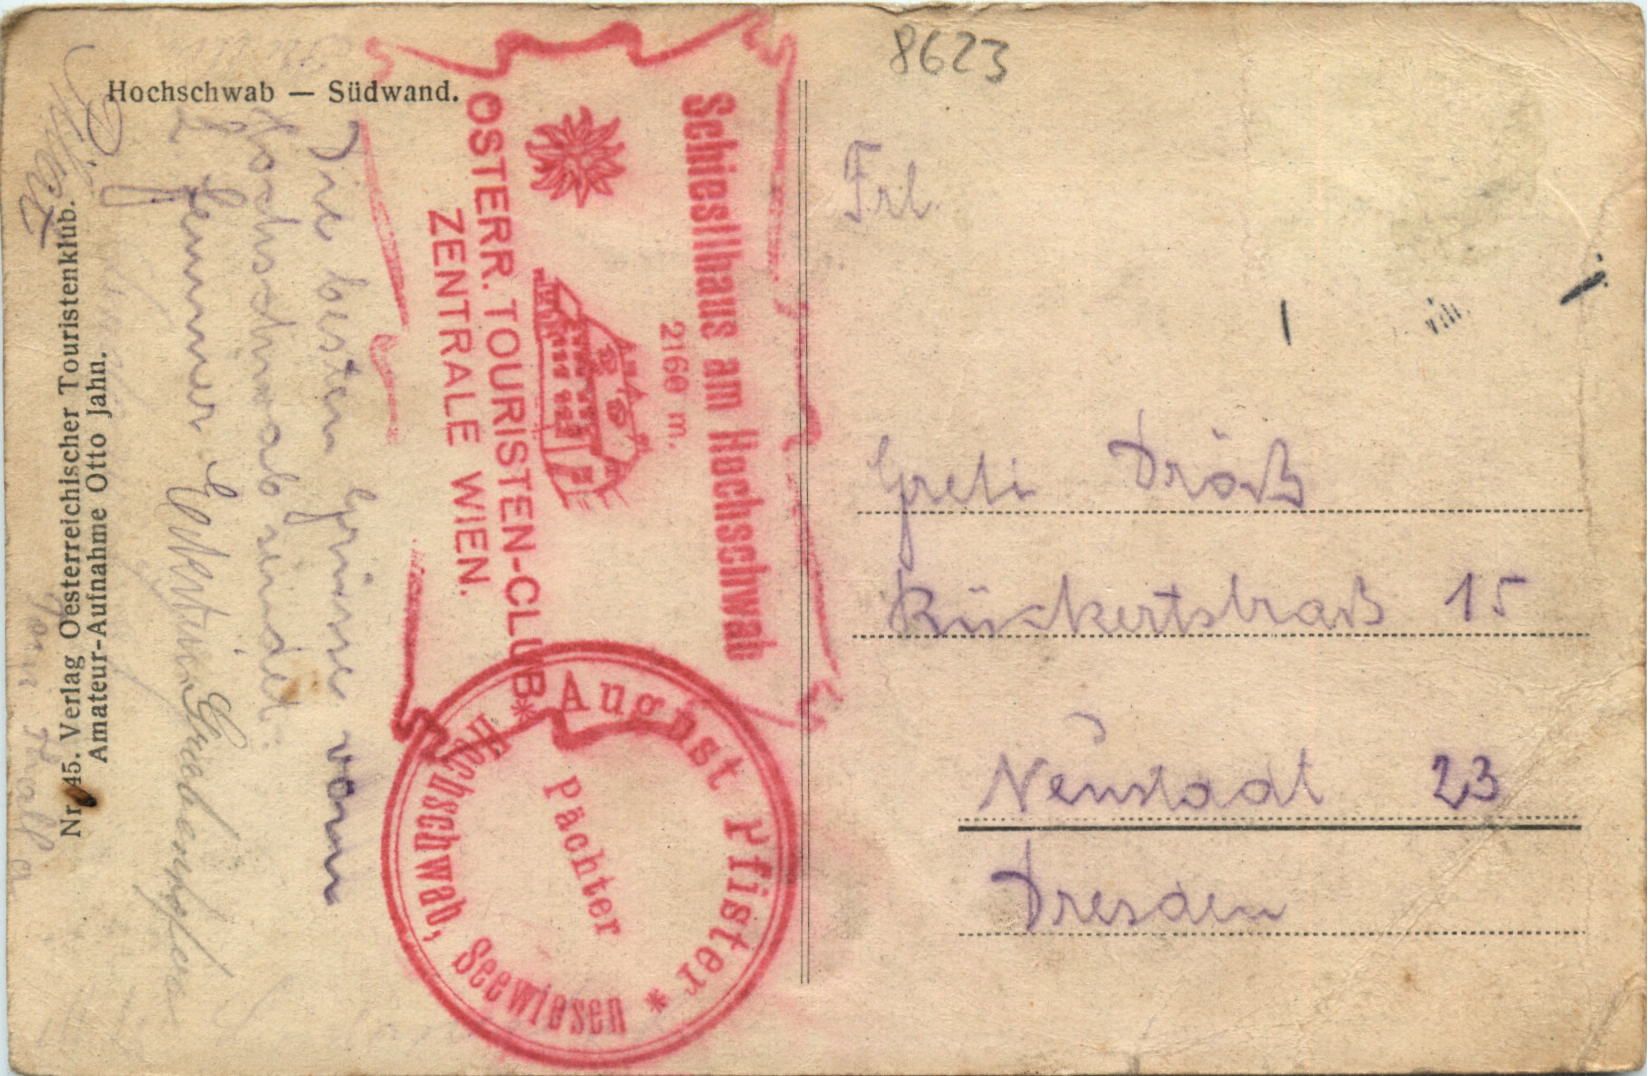 8623
Hochschwab — Südwand.
Nr. 45. Verlag Oesterreichischer Touristenklub.
Amateur-Aufnahme Otto Jahn.
Schiestlhaus am Hochschwab
2160 m.
OSTERR. TOURISTEN-CLUB
ZENTRALE WIEN.
* August Pfister *
Pächter
Hochschwab, Seewiesen
Die besten Grüsse vom
Hochschwab sendet
Frl.
Greti Dröß
Rückertstraß 15
Neustadt 23
Dresden